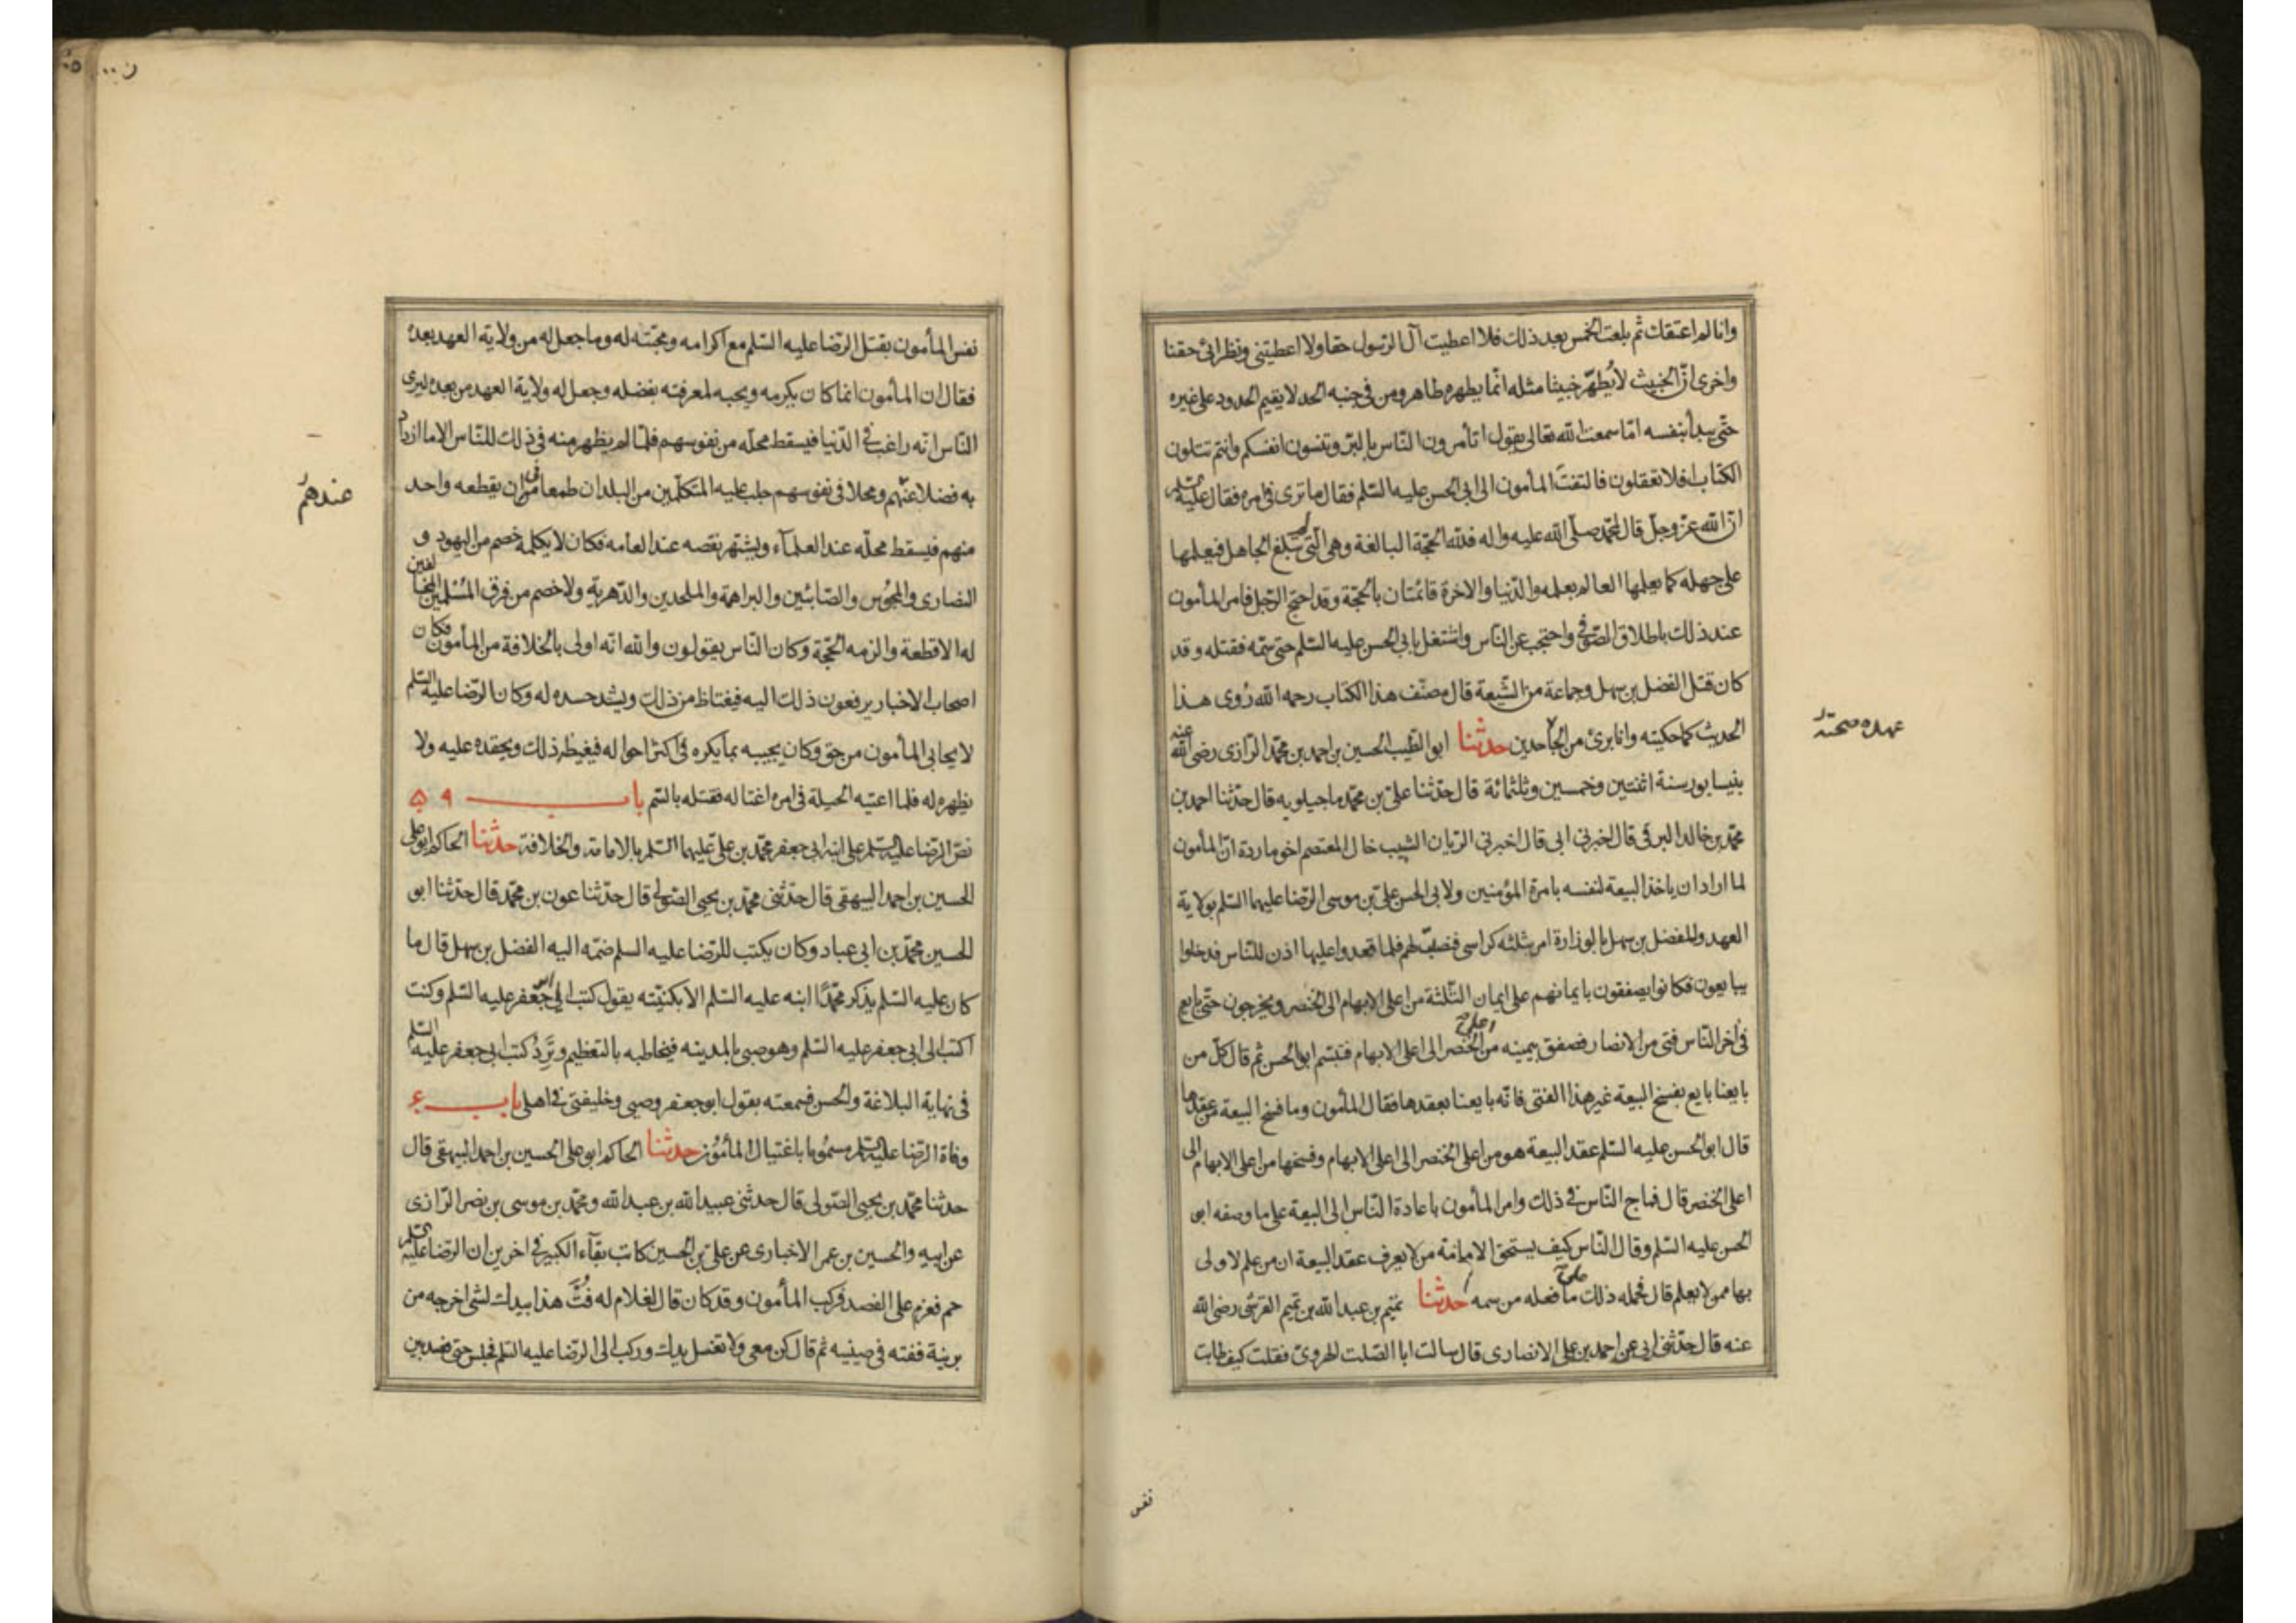 وانا لم اعتقك ثم بلعت الخمس بعد ذلك فلا اعطيت آل الرسول حقا ولا اعطيتنى ونظرائى حقنا
واخرى ان الخبيث لا يُطهّر خبيثا مثله انّما يطهره طاهر ومن فى جنبه الحد لا يقيم الحدود على غيره
حتى يبدأ بنفسه امّا سمعت الله تعالى يقول اتأمرون الناس بالبرّ وتنسون انفسكم وانتم تتلون
الكتاب افلا تعقلون فالتفتَ المأمون الى ابى الحسن عليه السّلم فقال ما ترى فى امره فقال عليه السلم
انّ الله عزّ وجلّ قال لمحمّد صلّى الله عليه واله فللّه الحجّة البالغة وهى الّتى لم تبلغ الجاهل فيعلمها
على جهله كما يعلمها العالم بعلمه والدّنيا والاخرة قائمتان بالحجّة وقد احتج الرّجل فامر المأمون
عند ذلك باطلاق الصّوفى واحتجب عن النّاس واشتغل بابى الحسن عليه السّلم حتى سمّه فقتله وقد
كان قتل الفضل بن سهل وجماعة من الشّيعة قال مصنّف هذا الكتاب رحمه الله رُوى هذا
الحديث كما حكيته وانا برئ من حدثنا ابو الطّيب الحسين بن احمد بن محمّد الرّازى رضى الله عنه
عهدة صحته
بنيسابور سنة اثنتين وخمسين وثلثمائة قال حدّثنا علىّ بن محمّد ماجيلويه قال حدّثنا احمد بن
محمّد بن خالد البرقى قال اخبرنى ابى قال اخبرنى الريان الشبيب خال المعتصم اخو ماردة انّ المأمون
لما اراد ان ياخذ البيعة لنفسه بامرة المؤمنين ولابى الحسن علىّ بن موسى الرّضا عليهما السّلم بولاية
العهد وللفضل بن سهل بالوزارة امر بثلثه كراسى فنصبت لهم فلما قعدوا عليها اذن للنّاس فدخلوا
يبايعون فكانوا يصفقون بايمانهم على ايمان الثّلثة من اعلى الابهام الى الخنصر ويخرجون حتى بايع
فى اخر النّاس فتى من الانصار فصفق بيمينه من اعلى الخنصر الى اعلى الابهام فتبسّم ابو الحسن ثم قال كلّ من
بايعنا بايع بفسخ البيعة غير هذا الفتى فانّه بايعنا بعقدها فقال المأمون وما فسخ البيعة من عقدها
قال ابو الحسن عليه السّلم عقد البيعة هو من اعلى الخنصر الى اعلى الابهام وفسخها من اعلى الابهام الى
اعلى الخنصر قال فماج النّاس فى ذلك وامر المأمون باعادة النّاس الى البيعة على ما وصفه ابو
الحسن عليه السّلم وقال النّاس كيف يستحق الامامة من لا يعرف عقد البيعة ان من علم لاولى
بها ممن لا يعلم قال فحمله ذلك على ما فعله من سمه حدثنا تميم بن عبد الله بن تميم القرشى رضى الله
عنه قال حدّثنى ابى عن احمد بن على الانصارى قال سالت ابا الصّلت الهروىّ فقلت كيف طابت
نفس
نفس المأمون بقتل الرّضا عليه السّلم مع اكرامه ومحبّته له وما جعل له من ولاية العهد بعده
فقال ان المأمون انما كان يكرمه ويحبه لمعرفته بفضله وجعل له ولاية العهد من بعده ليرى
النّاس انّه راغب فى الدّنيا فيسقط محلّه من نفوسهم فلمّا لم يظهر منه فى ذلك للنّاس الا ما ازداد
به فضلا عندهم ومحلا فى نفوسهم جلب عليه المتكلّمين من البلدان طمعا فى ان يقطعه واحد
عندهم
منهم فيسقط محلّه عند العلمآء ويشتهر نقصه عند العامه فكان لا يكلمه خصم من اليهود و
النصارى والمجوس والصّابئين والبراهمة والملحدين والدّهريّة ولا خصم من فرق المُسْلمين المخالفين
له الا قطعة والزمه الحجّة وكان النّاس يقولون والله انّه اولى بالخلافة من المأمون فكان
اصحاب الاخبار يرفعون ذلك اليه فيغتاظ من ذلك ويشد حسده له وكان الرّضا عليه السّلم
لا يحابى المأمون من حق وكان يجيبه بما يكره فى اكثر احواله فيغيظه ذلك ويحقده عليه ولا
يظهره له فلما اعيته الحيلة فى امره اغتاله فقتله بالسّم باب ۵۹
نصّ الرّضا عليه السّلم على ابنه ابى جعفر محمّد بن علىّ عليهما السّلم بالامامة والخلافة حدثنا الحاكم ابو على
الحسين بن احمد البيهقى قال حدّثنى محمّد بن يحيى الصّولى قال حدّثنا عون بن محمّد قال حدّثنا ابو
الحسين محمّد بن ابى عباد وكان يكتب للرّضا عليه السلم ضمّه اليه الفضل بن سهل قال ما
كان عليه السّلم يذكر محمّدًا ابنه عليه السّلم الا بكنيّته يقول كتب الى ابو جعفر عليه السّلم وكنت
اكتب الى ابى جعفر عليه السّلم وهو صبى بالمدينه فيخاطبه بالتعظيم وتَرِدُ كتب ابى جعفر عليه السّلم
فى نهاية البلاغة والحسن فسمعته يقول ابو جعفر وصيى وخليفتى فى اهلى باب
وفاة الرّضا عليه السّلم مسمُوما باغتيال المأمُون حدثنا الحاكم ابو على الحسين بن احمد البيهقى قال
حدثنا محمّد بن يحيى الصّولى قال حدثنى عبيد الله بن عبد الله ومحمّد بن موسى بن نصر الرّازى
عن ابيه والحسين بن عمر الاخبارى عن علىّ بن الحسين كاتب بقآء الكبير فى اخرين ان الرّضا عليه السّلم
حم فعزم على الفصد فركب المأمون وقد كان قال لغلام له فُتَّ هذا بيدك لشى اخرجه من
برنية ففته فى صينيه ثم قال كن معى ولا تغسل يدك وركب الى الرّضا عليه السّلم فجلس حتى فصد بين